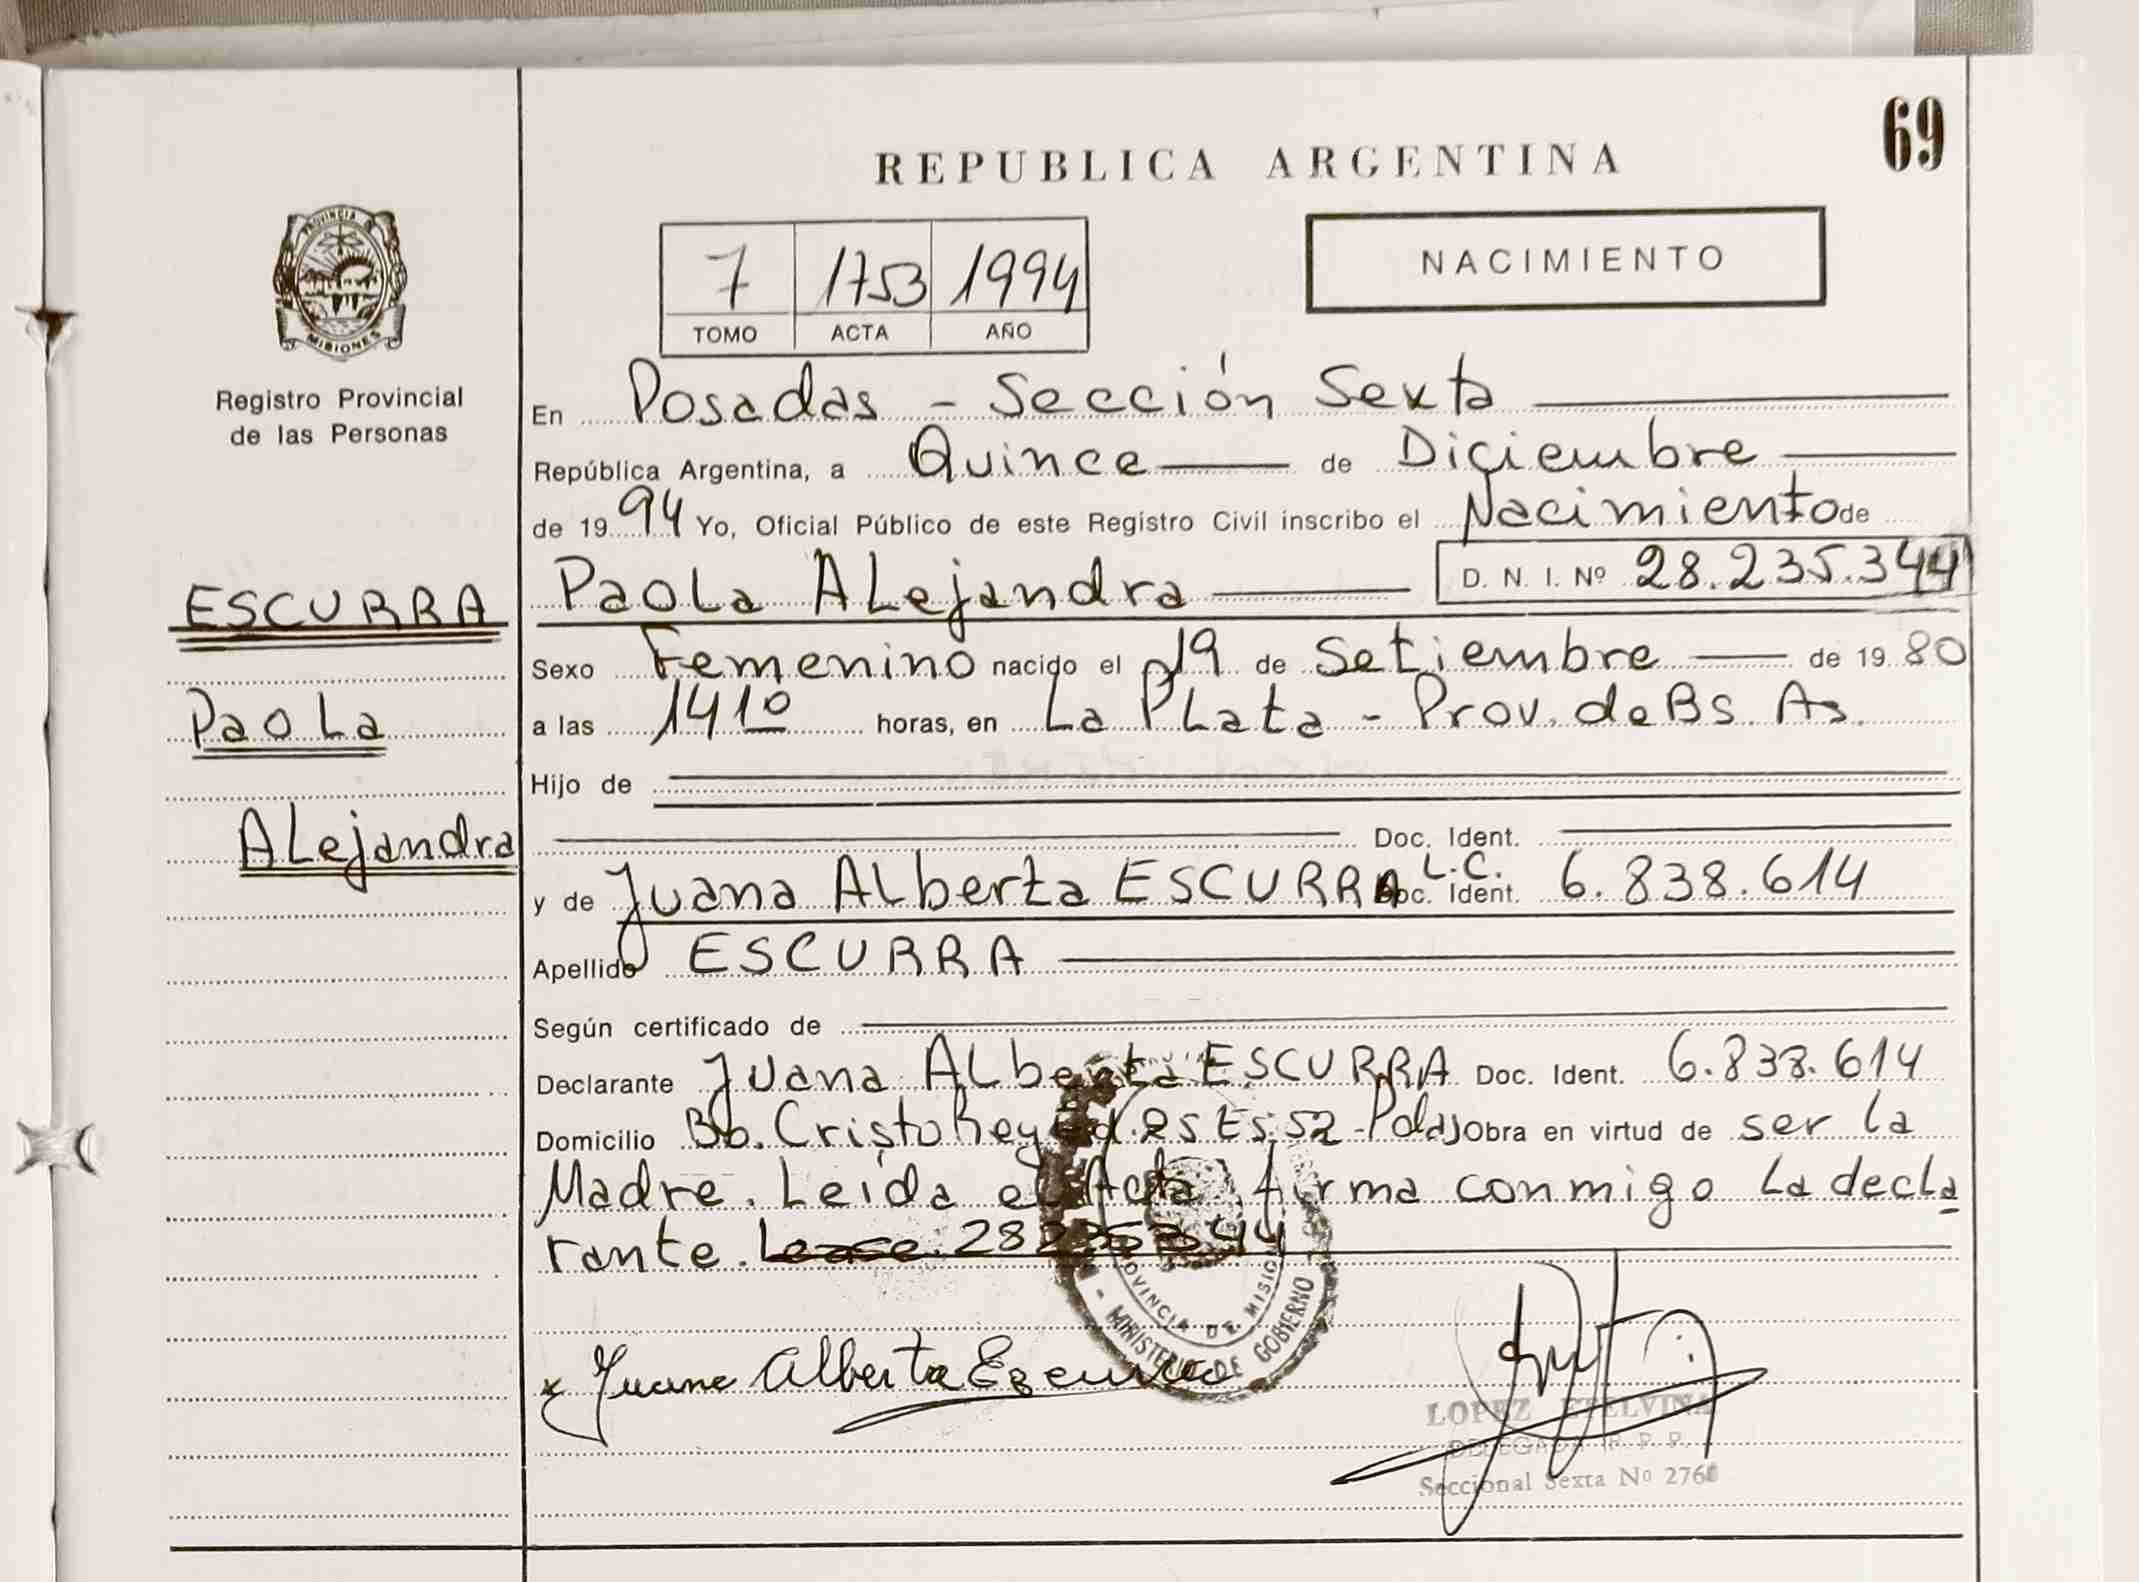 69
REPUBLICA ARGENTINA
PROVINCIA DE
MISIONES
Registro Provincial
de las Personas
7 1753 1994
TOMO ACTA AÑO
NACIMIENTO
En Posadas - Sección Sexta
República Argentina, a Quince de Diciembre
de 1994 Yo, Oficial Público de este Registro Civil inscribo el Nacimiento de
ESCURRA
Paola
Alejandra
Paola Alejandra D. N. I. Nº 28.235.344
Sexo Femenino nacido el 19 de Setiembre de 1980
a las 14 10 horas, en La Plata - Prov. de Bs. As.
Hijo de
Doc. Ident.
y de Juana Alberta ESCURRA L.C. Doc. Ident. 6.838.614
Apellido ESCURRA
Según certificado de
Declarante Juana Alberta ESCURRA Doc. Ident. 6.838.614
Domicilio Bb. Cristo Rey Ed. 25 Es. 52 - Pdas Obra en virtud de ser la
Madre. Leída el Acta, firma conmigo la decla
rante. 28235344
PROVINCIA DE MISIONES
- MINISTERIO DE GOBIERNO
x Juana Alberta
LOPEZ ETELVINA
DELEGADA R. P. P.
Seccional Sexta Nº 2760